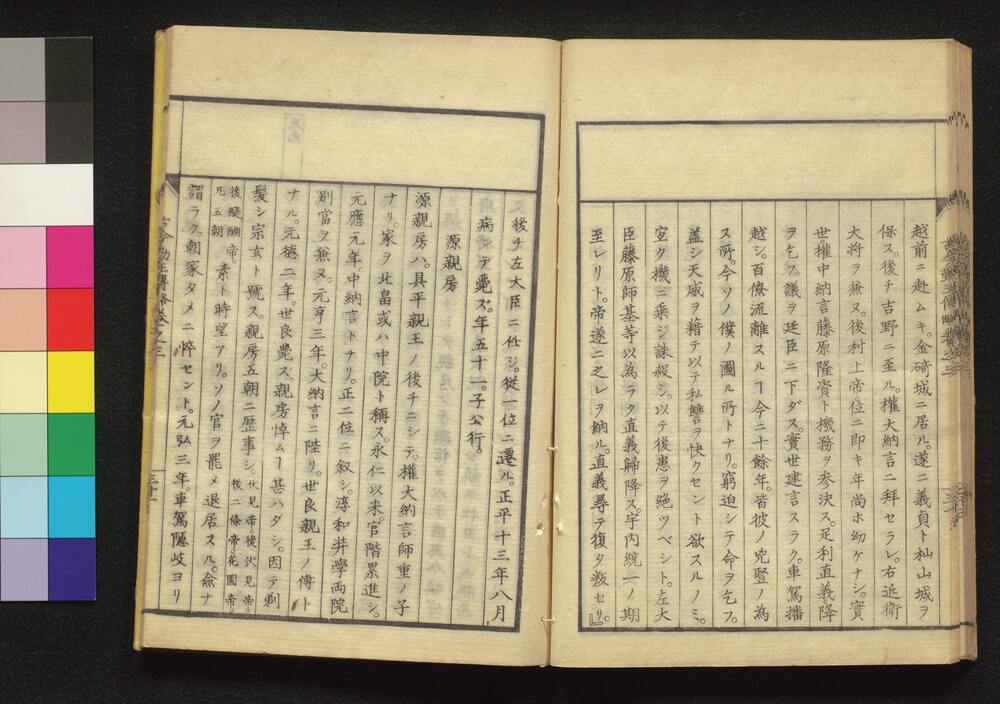 越前ニ赴ムキ。金碕城ニ居ル。遂ニ義貞ト杣山城ヲ
保ス。後チ吉野ニ至ル。權大納言ニ拜セラレ。右近衛
大将ヲ兼ヌ。後村上帝。位ニ即キ年尚ホ幼ケナシ。實
世。權中納言藤原隆資ト機務ヲ参決ス。足利直義降
ヲ乞フ。議ヲ廷臣ニ下ダス。實世建言スラク。車駕播
越シ。百僚流離スルヿ今ニ十餘年。皆彼ノ兇豎ノ為
ス所。今ソノ僕ノ圖ル所トナリ。窮迫シテ命ヲ乞フ。
盖シ天威ヲ藉テ以テ私讐ヲ快クセント欲スルノミ。
宜ク機ニ乗ジ誅殺シ。以テ後患ヲ絶ツベシト。左大
臣藤原師基等以為ラク直義歸降ス。宇内統一ノ期
至レリト。帝遂ニ之レヲ納ル。直義尋テ復タ叛セリ。』
後チ左大臣ニ任シ。従一位ニ遷ル。正平十三年八月
病シテ薨ズ。年五十一。子公行。
源親房
源親房ハ。具平親王ノ後チニシテ。權大納言師重ノ子
ナリ。家ヲ北畠或ハ中院ト稱ス。永仁以来。官階累進シ。
元應元年。中納言トナリ。正二位ニ叙シ。淳和奨學両院
別當ヲ兼ヌ。元亨三年。大納言ニ陛リ。世良親王ノ傅ト
ナル。元德二年。世良薨ズ。親房悼ムヿ甚ハダシ。因テ剃
髪シ宗玄ト號ス。親房五朝ニ歴事シ。伏見帝後伏見帝。
後二條帝。花園帝。
後醍醐帝。
凡五朝
素ト時望アリ。ソノ官ヲ罷メ退居スル。僉ナ
謂ラク。朝家タメニ悴セント。元弘三年。車駕隠岐ヨリ